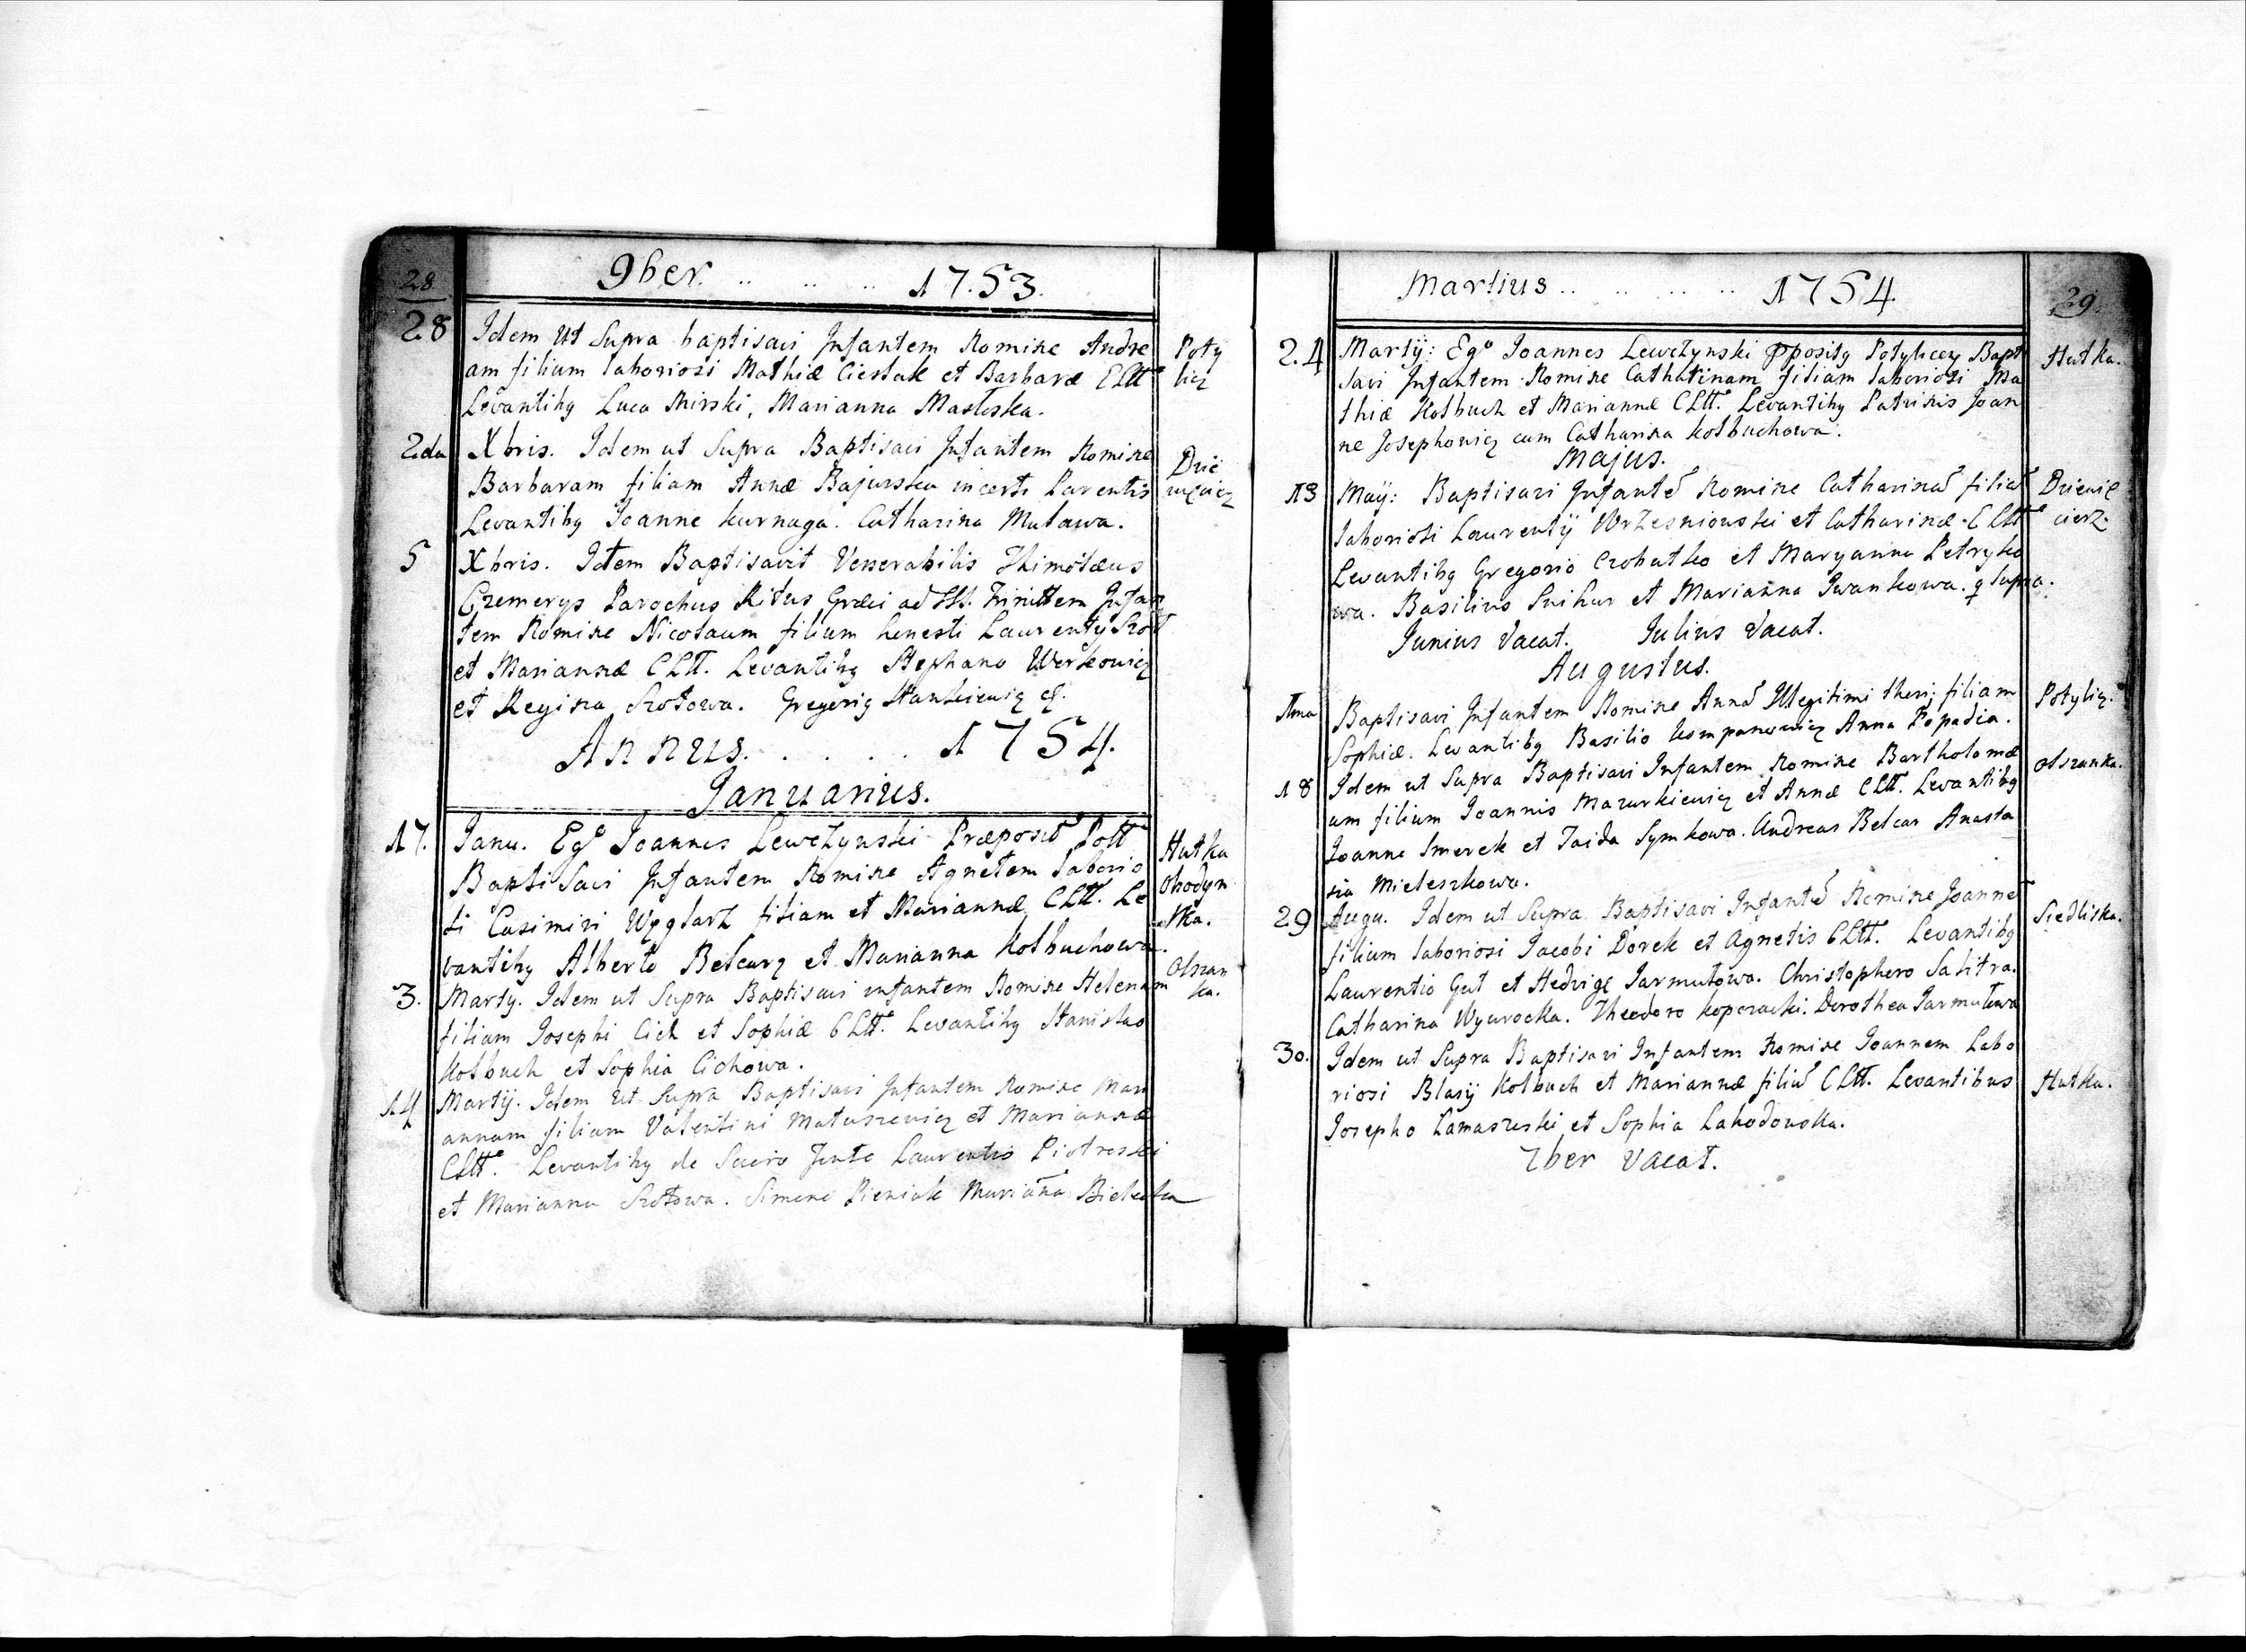 28
9ber. .. .. .. 1753.
28 Idem ut Supra baptisavi Infantem Nomine Andre
am filium laboriosi Mathiæ Cieslak et Barbaræ CLtt.
Levantibq Luca Mirski, Marianna Masloska.
Poty
licz
2da Xbris. Idem ut Supra Baptisavi Infantem Nomine
Barbaram filiam Annæ Bajurska incerti Parentis
Levantibq Joanne kurnaga. Catharina Mulawa.
Dzie
więcierz
5 Xbris. Idem Baptisavit Venerabilis Thimotæus
Czemerys Parochus Ritus Græci ad SSS. Trinittem Infan
tem Nomine Nicolaum filium honesti Laurenty Szot
et Mariannæ CLtt. Levantibq Stephano Werkowicz
et Regina Szotowa. Gregoriq Stankiewicz
Annus. . . . . . 1754.
Januarius.
17. Janu. Ego Joannes Lewczynski Præposit Pott
Baptisavi Infantem Nomine Agnetem laborio
si Casimiri Węglarz filiam et Mariannæ CLtt. Le
vantibq Alberto Belcarz et Marianna Kolbuchowa.
Hutka
Obodyn
ska.
3. Marty. Idem ut Supra Baptisavi infantem Nomine Helenam
filiam Josephi Cich et Sophiæ CLtt. Levantibq Stanislao
Kolbuch et Sophia Cichowa.
Olszan
ka.
14 Martÿ. Idem ut Supra Baptisavi Infantem Nomine Mari
annam filiam Valentini Matuszewicz et Mariannæ
CLtt. Levantibq de Sacro fonte Laurentio Piotrosski
et Marianna Szotowa. Simone Pieniak Mariana Bielecka
Martius .. .. .. .. 1754.
29
24 Martÿ: Ego Joannes Lewczynski pposity Potylicen Bapti
savi Infantem Nomine Catharinam filiam laboriosi Ma
thiæ Kolbuch et Mariannæ CLtt. Levantibq Patrinis Joan
ne Josephowicz cum Catharina kolbuchowa.
Hutka.
Majus.
13 Maÿ: Baptisavi Infante Nomine Catharina filia
laboriosi Laurentÿ Wrzesniowski et Catharinæ CLtt
Levantibq Gregorio Czobatko et Maryanna Petryko
wa. Basilius Snihur et Marianna Iwankowa. q supra.
Dziewię
cierz.
Junius Vacat. Julius Vacat.
Augustus.
1ma Baptisavi Infantem Nomine Anna Illegitimi thori filiam
Sophiæ. Levantibq Basilio Kompanowicz Anna Popadia.
Potylicz.
18 Idem ut Supra Baptisavi Infantem Nomine Bartholomæ
um filium Joannis Mazurkiewicz et Annæ CLtt. Levantibq
Joanne Smerek et Taida Symkowa. Andreas Belcar Anasta
sia Mieleszkowa.
olszanka.
29 Augu. Idem ut Supra Baptisavi Infante Nomine Joanne
filium laboriosi Jacobi Dorek et Agnetis CLtt. Levantibq
Laurentio Gut et Hedvige Jarmulowa. Christophero Salitra.
Catharina Wywrocka. Theodoro koperacki. Dorothea Jarmulowa
Siedliska.
30. Idem ut Supra Baptisavi Infantem Nomine Joannem Labo
riosi Blasÿ Kolbuch et Mariannæ filiu CLtt. Levantibus
Josepho Lamaszeski et Sophia Lahodowska.
Hutka.
7ber Vacat.